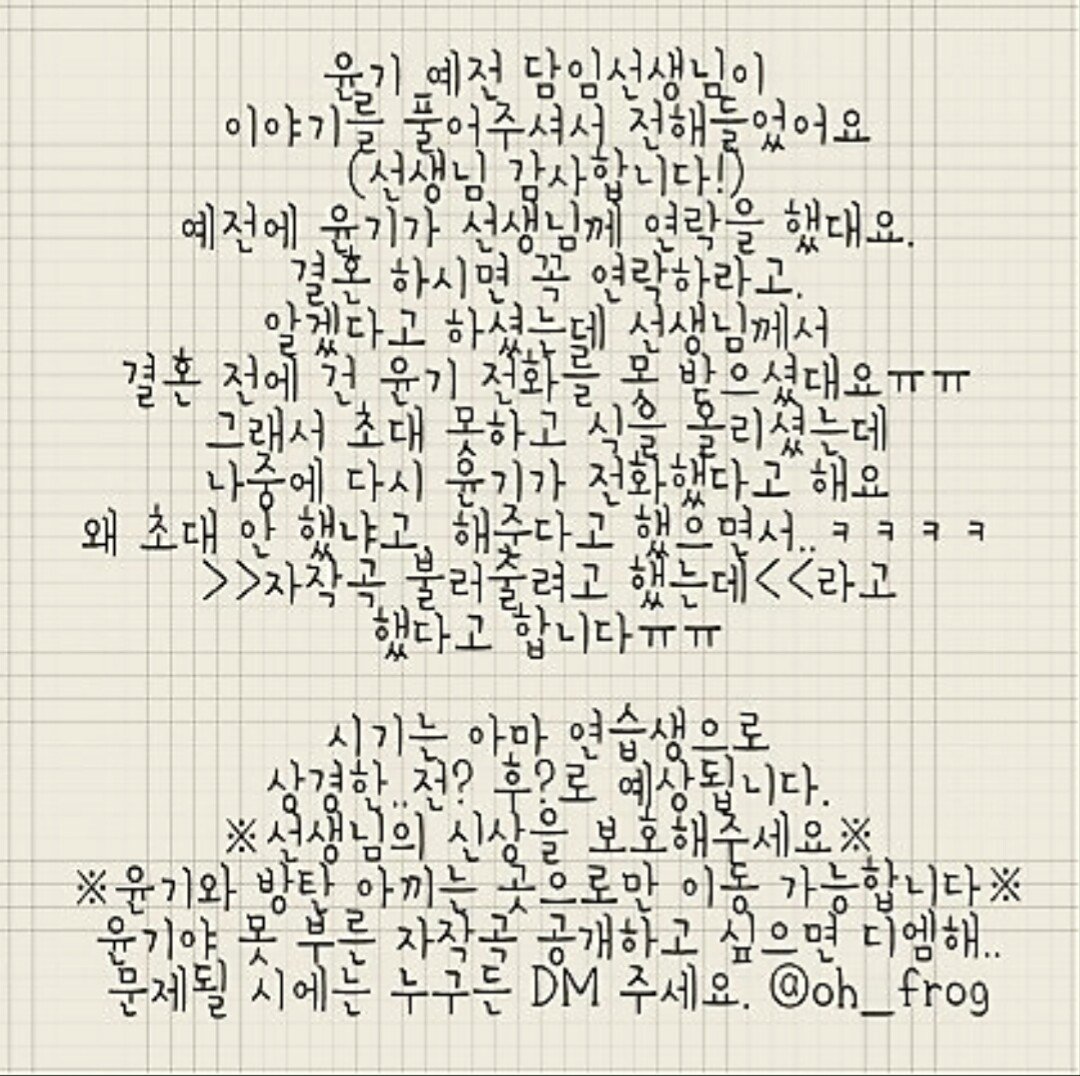 윤기 예전 담임선생님이
이야기를 풀어주셔서 전해들었어요
(선생님 감사합니다!)
예전에 윤기가 선생님께 연락을 했대요.
결혼 하시면 꼭 연락하라고.
알겠다고 하셨는데 선생님께서
결혼 전에 건 윤기 전화를 못 받으셨대요ㅠㅠ
그래서 초대 못하고 식을 올리셨는데
나중에 다시 윤기가 전화했다고 해요
왜 초대 안 했냐고, 해주다고 했으면서..ㅋㅋㅋㅋ
>>자작곡 불러줄려고 했는데<<라고
했다고 합니다ㅠㅠ
시기는 아마 연습생으로
상경한..전? 후?로 예상됩니다.
※선생님의 신상을 보호해주세요※
※윤기와 방탄 아끼는 곳으로만 이동 가능합니다※
윤기야 못 부른 자작곡 공개하고 싶으면 디엠해..
문제될 시에는 누구든 DM 주세요. @oh_frog